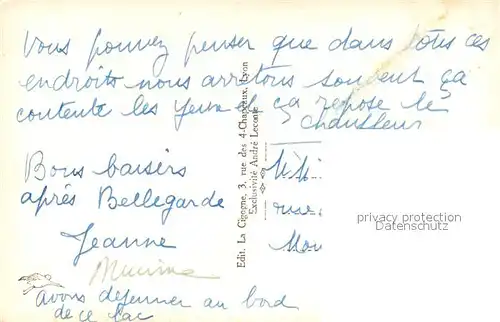 Vous pouvez penser que dans tous ces
endroits nous arretons souvent ça
contente les yeux et ça repose le
chauffeur
Bons baisers
après Bellegarde
Jeanne
avons dejeuner au bord
de ce lac
Edit. La Cigogne, 3, rue des 4-Chapeaux, Lyon
Exclusivité André Leconte
M. M.
rue
Mon
privacy protection
Datenschutz